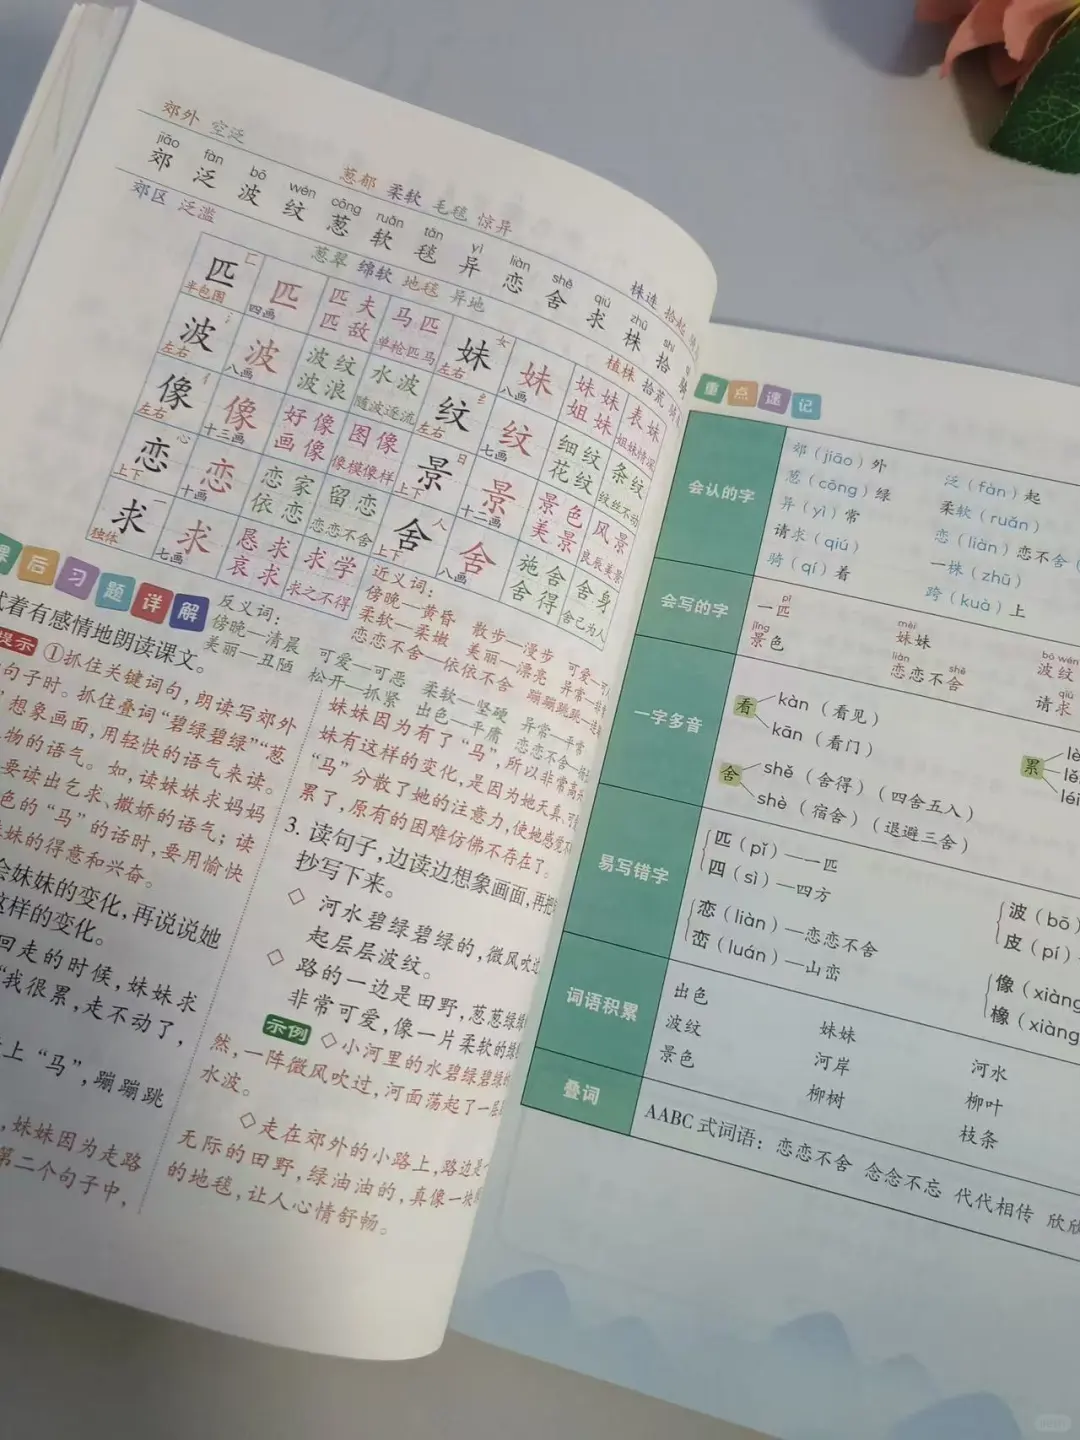 郊外 空泛
葱郁 柔软 毛毯 惊异
株连 拾起
jiāo fàn bō wén cōng ruǎn tǎn yì liàn shě qiú zhū shí
郊 泛 波 纹 葱 软 毯 异 恋 舍 求 株 拾 骑
郊区 泛滥
葱翠 绵软 地毯 异地
植株 拾荒
匹 匚 半包围 匹 四画 匹夫 匹敌 马匹 单枪匹马 妹 女 左右 妹 八画 妹妹 姐妹 表妹 姐妹情深
波 氵 左右 波 八画 波纹 波浪 水波 随波逐流 纹 纟 左右 纹 七画 细纹 花纹 条纹 纹丝不动
像 亻 左右 像 十三画 好像 画像 图像 像模像样 景 日 上下 景 十二画 景色 美景 风景 良辰美景
恋 心 上下 恋 十画 恋家 依恋 留恋 恋恋不舍 舍 人 上下 舍 八画 施舍 舍得 舍身 舍己为人
求 一 独体 求 七画 恳求 哀求 求学 求之不得
课后习题详解
试着有感情地朗读课文。
提示 ①抓住关键词句，朗读写郊外
句子时。抓住叠词“碧绿碧绿”“葱
”想象画面，用轻快的语气来读。
物的语气。如，读妹妹求妈妈
要读出乞求、撒娇的语气；读
色的“马”的话时，要用愉快
妹的得意和兴奋。
会妹妹的变化，再说说她
这样的变化。
回走的时候，妹妹求
“我很累，走不动了，
上“马”，蹦蹦跳
，妹妹因为走路
第二个句子中，
反义词：
傍晚—清晨
美丽—丑陋
可爱—可恶
松开—抓紧
柔软—坚硬
出色—平庸
异常—平常
近义词：
傍晚—黄昏 散步—漫步
柔软—柔嫩 美丽—漂亮
恋恋不舍—依依不舍
妹妹因为有了“马”，所以非常高兴
妹有这样的变化，是因为她天真、可爱
“马”分散了她的注意力，使她感觉不
累了，原有的困难仿佛不存在了。
3. 读句子，边读边想象画面，再把
抄写下来。
◇ 河水碧绿碧绿的，微风吹过
起层层波纹。
◇ 路的一边是田野，葱葱绿绿
非常可爱，像一片柔软的绿
示例 ◇小河里的水碧绿碧绿的
然，一阵微风吹过，河面荡起了一层
水波。
◇走在郊外的小路上，路边是一
无际的田野，绿油油的，真像一块
的地毯，让人心情舒畅。
重点速记
会认的字
郊（jiāo）外 泛（fàn）起
葱（cōng）绿 柔软（ruǎn）
异（yì）常 恋（liàn）恋不舍（
请求（qiú） 一株（zhū）
骑（qí）着 跨（kuà）上
会写的字
pǐ mèi bō wén
一匹 妹妹 波纹
jǐng liàn shě qiú
景色 恋恋不舍 请求
一字多音
看 kàn（看见）
kān（看门）
舍 shě（舍得）（四舍五入）
shè（宿舍）（退避三舍）
累
易写错字
匹（pǐ）—一匹 波（bō）
四（sì）—四方 皮（pí）
恋（liàn）—恋恋不舍 像（xiàng
峦（luán）—山峦 橡（xiàng
词语积累
出色 妹妹 河水
波纹 河岸 柳叶
景色 柳树 枝条
叠词
AABC 式词语：恋恋不舍 念念不忘 代代相传 欣欣